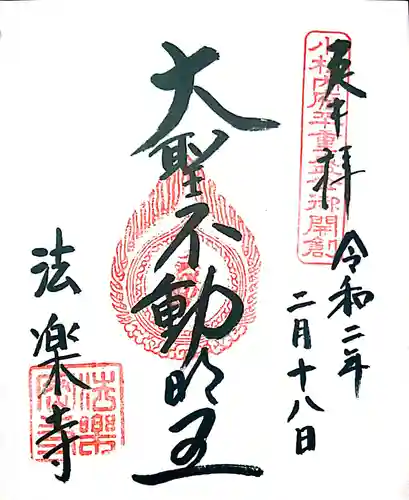 奉拝
令和二年
二月十八日
大聖不動明王
法楽寺
小松内府平重盛公御開創
法樂